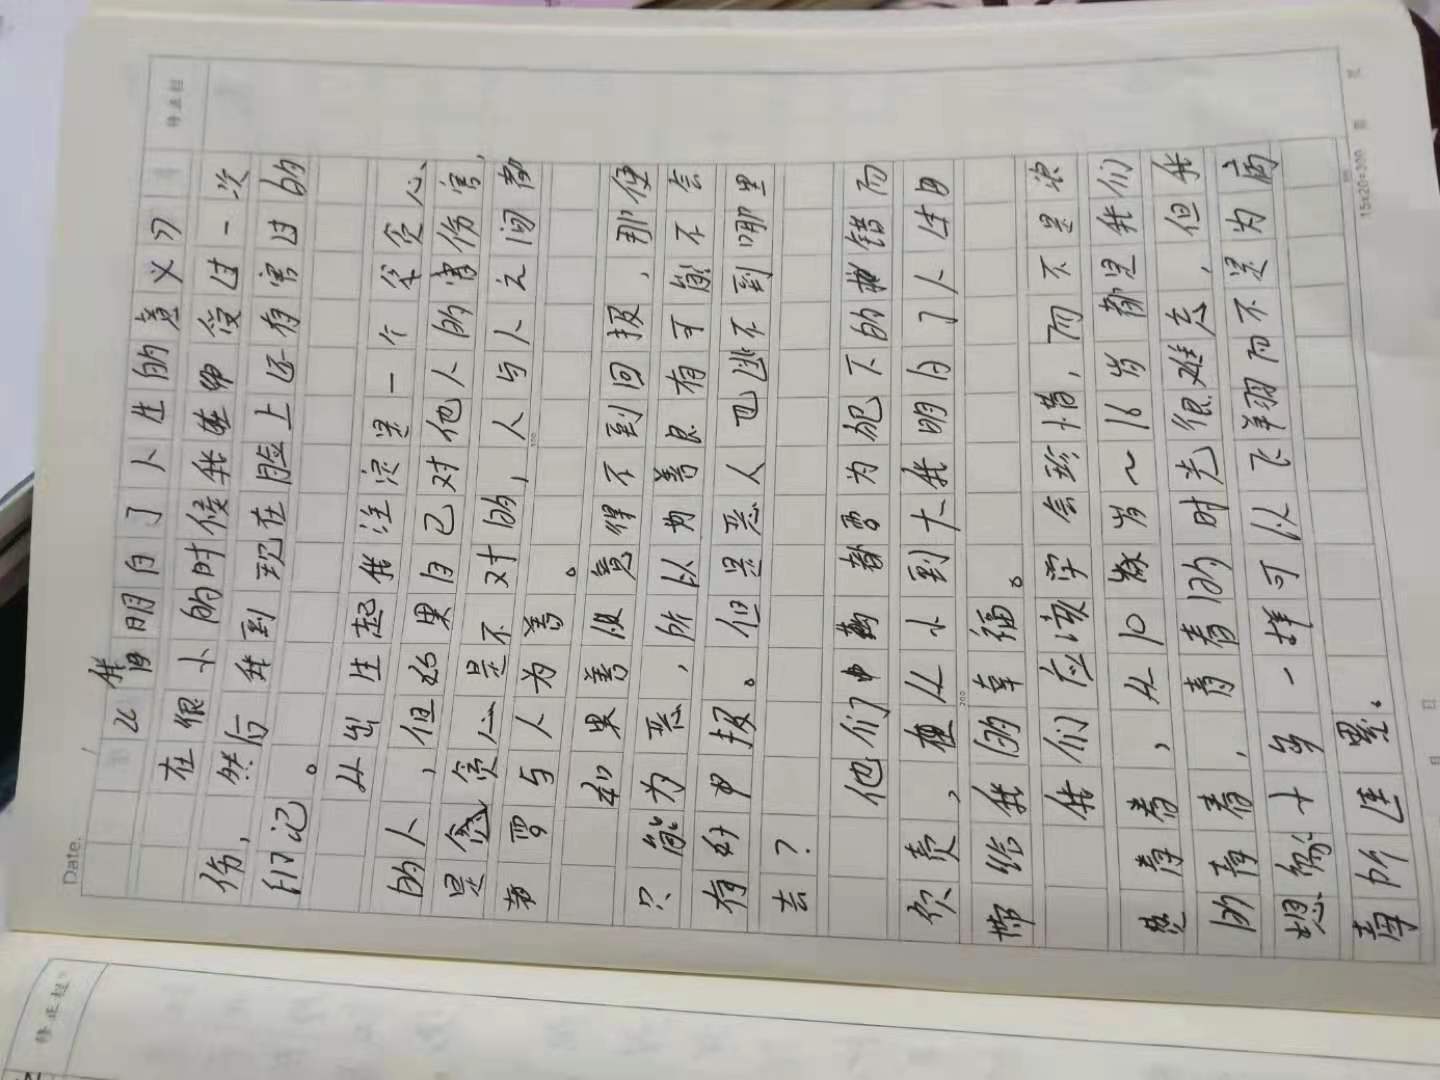 Date.
修正栏
《我明白了人生的意义》
在很小的时候我受过一次
伤,然后我到现在脸上还有害过的
们记。
从出生起我注定是一个贪心
的人,但如果自己对他人的害伤害,
是贪心是不对的,人与人之间都
要与人为善。
如果善没意得不到回报,那便
只能为恶,所以为善良有可能不会
有好报。但是恶人也逃不到哪里
去?
他们都需为犯下的错而
负责,从小到大我明白了人生
带给我的幸福。
我们应该学会珍惜,而不是浪
费青春,从10岁~16岁都是我们
的青春,青春的时光很难忘,但我
想像十岁一样可以飞翔而不是为高
每个压累。
100
200
15x20=300
修正栏